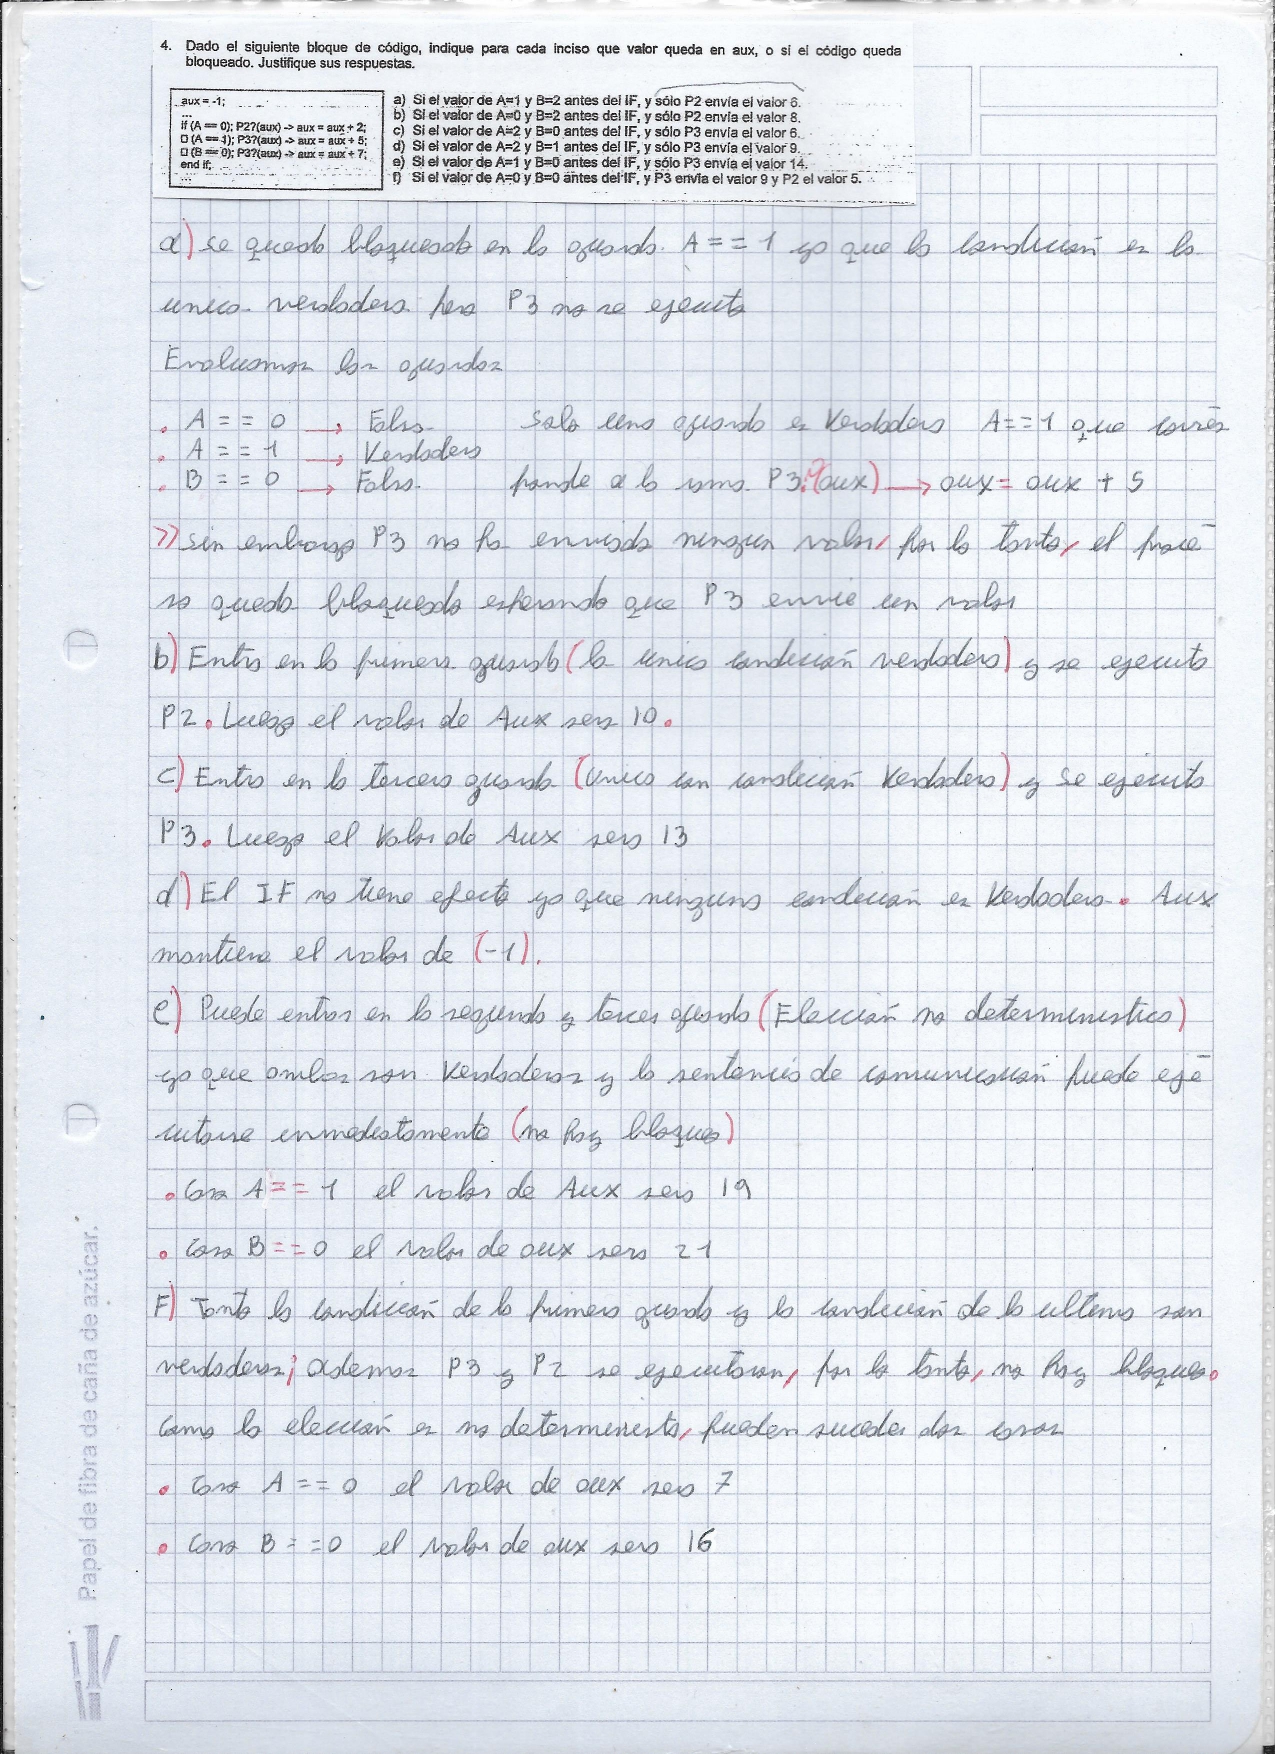 4. Dado el siguiente bloque de código, indique para cada inciso que valor queda en aux, o si el código queda
bloqueado. Justifique sus respuestas.
aux = -1;
...
if (A == 0); P2?(aux) -> aux = aux + 2;
□ (A == 1); P3?(aux) -> aux = aux + 5;
□ (B == 0); P3?(aux) -> aux = aux + 7;
end if;
...
a) Si el valor de A=1 y B=2 antes del IF, y sólo P2 envía el valor 6.
b) Si el valor de A=0 y B=2 antes del IF, y sólo P2 envía el valor 8.
c) Si el valor de A=2 y B=0 antes del IF, y sólo P3 envía el valor 6.
d) Si el valor de A=2 y B=1 antes del IF, y sólo P3 envía el valor 9.
e) Si el valor de A=1 y B=0 antes del IF, y sólo P3 envía el valor 14.
f) Si el valor de A=0 y B=0 antes del IF, y P3 envía el valor 9 y P2 el valor 5.
a) se queda bloqueado en la guarda A == 1 ya que la condición es la
unica verdadera pero P3 no se ejecuta
Evaluamos las guardas
. A == 0 → Falso. Solo una guarda es Verdadera A==1 que corres
. A == 1 → Verdadero
. B == 0 → Falso. ponde a la rama P3?(aux) → aux = aux + 5
>> sin embargo P3 no ha enviado ningun valor, por lo tanto, el proce
so queda bloqueado esperando que P3 envie un valor
b) Entra en la primera guarda (la unica condición verdadera) y se ejecuta
P2. Luego el valor de Aux sera 10.
c) Entra en la tercera guarda (unica con condición Verdadera) y se ejecuta
P3. Luego el Valor de Aux sera 13
d) El IF no tiene efecto ya que ninguna condición es Verdadera. Aux
mantiene el valor de (-1).
e) Puede entrar en la segunda y tercer guarda (Elección no deterministica)
ya que ambas son Verdaderas y la sentencia de comunicación puede eje
cutarse inmediatamente (no hay bloqueo)
• Caso A == 1 el valor de Aux sera 19
• Caso B == 0 el valor de aux sera 21
F) Tanto la condición de la primera guarda y la condición de la ultima son
verdaderas; ademas P3 y P2 se ejecutaran, por lo tanto, no hay bloqueo.
Como la elección es no determinista, pueden suceder dos casos
• Caso A == 0 el valor de aux sera 7
• Caso B == 0 el valor de aux sera 16
Papel de fibra de caña de azúcar.